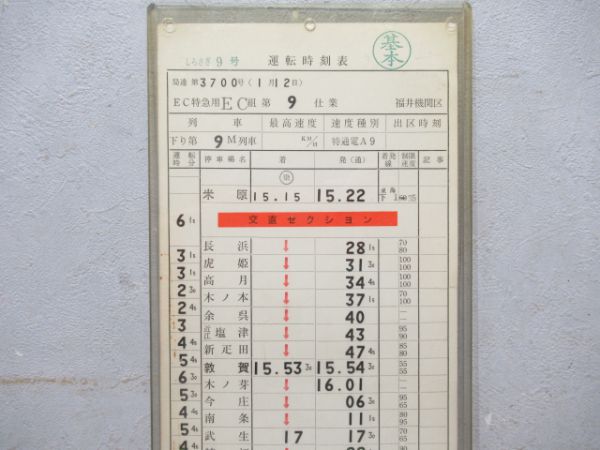 しらさぎ 9 号 運転時刻表 基本
局達 第3700号(1月12日)
EC特急用EC組 第 9 仕業 福井機関区
列車 最高速度 速度種別 出区時刻
下り第 9M列車 KM/H 特通電A9
運転時分 停車場名 着 発(通) 着発線 制限速度 記事
米原 15.15 15.22
6 15 交直セクション
長浜 ↓ 28 15 70 80
3 15 虎姫 ↓ 31 30 100 100
3 15 高月 ↓ 34 45 100 100
2 30 木ノ本 ↓ 37 15 70 100
2 45 余呉 ↓ 40 —
3 近江塩津 ↓ 43 95 90
4 45 新疋田 ↓ 47 45 85 80
5 45 敦賀 15.53 30 15.54 30 55 55
6 30 木ノ芽 ↓ 16.01 —
5 30 今庄 ↓ 06 30 95 65
4 45 南条 ↓ 11 15 80 95
5 45 武生 17 17 30 70 65